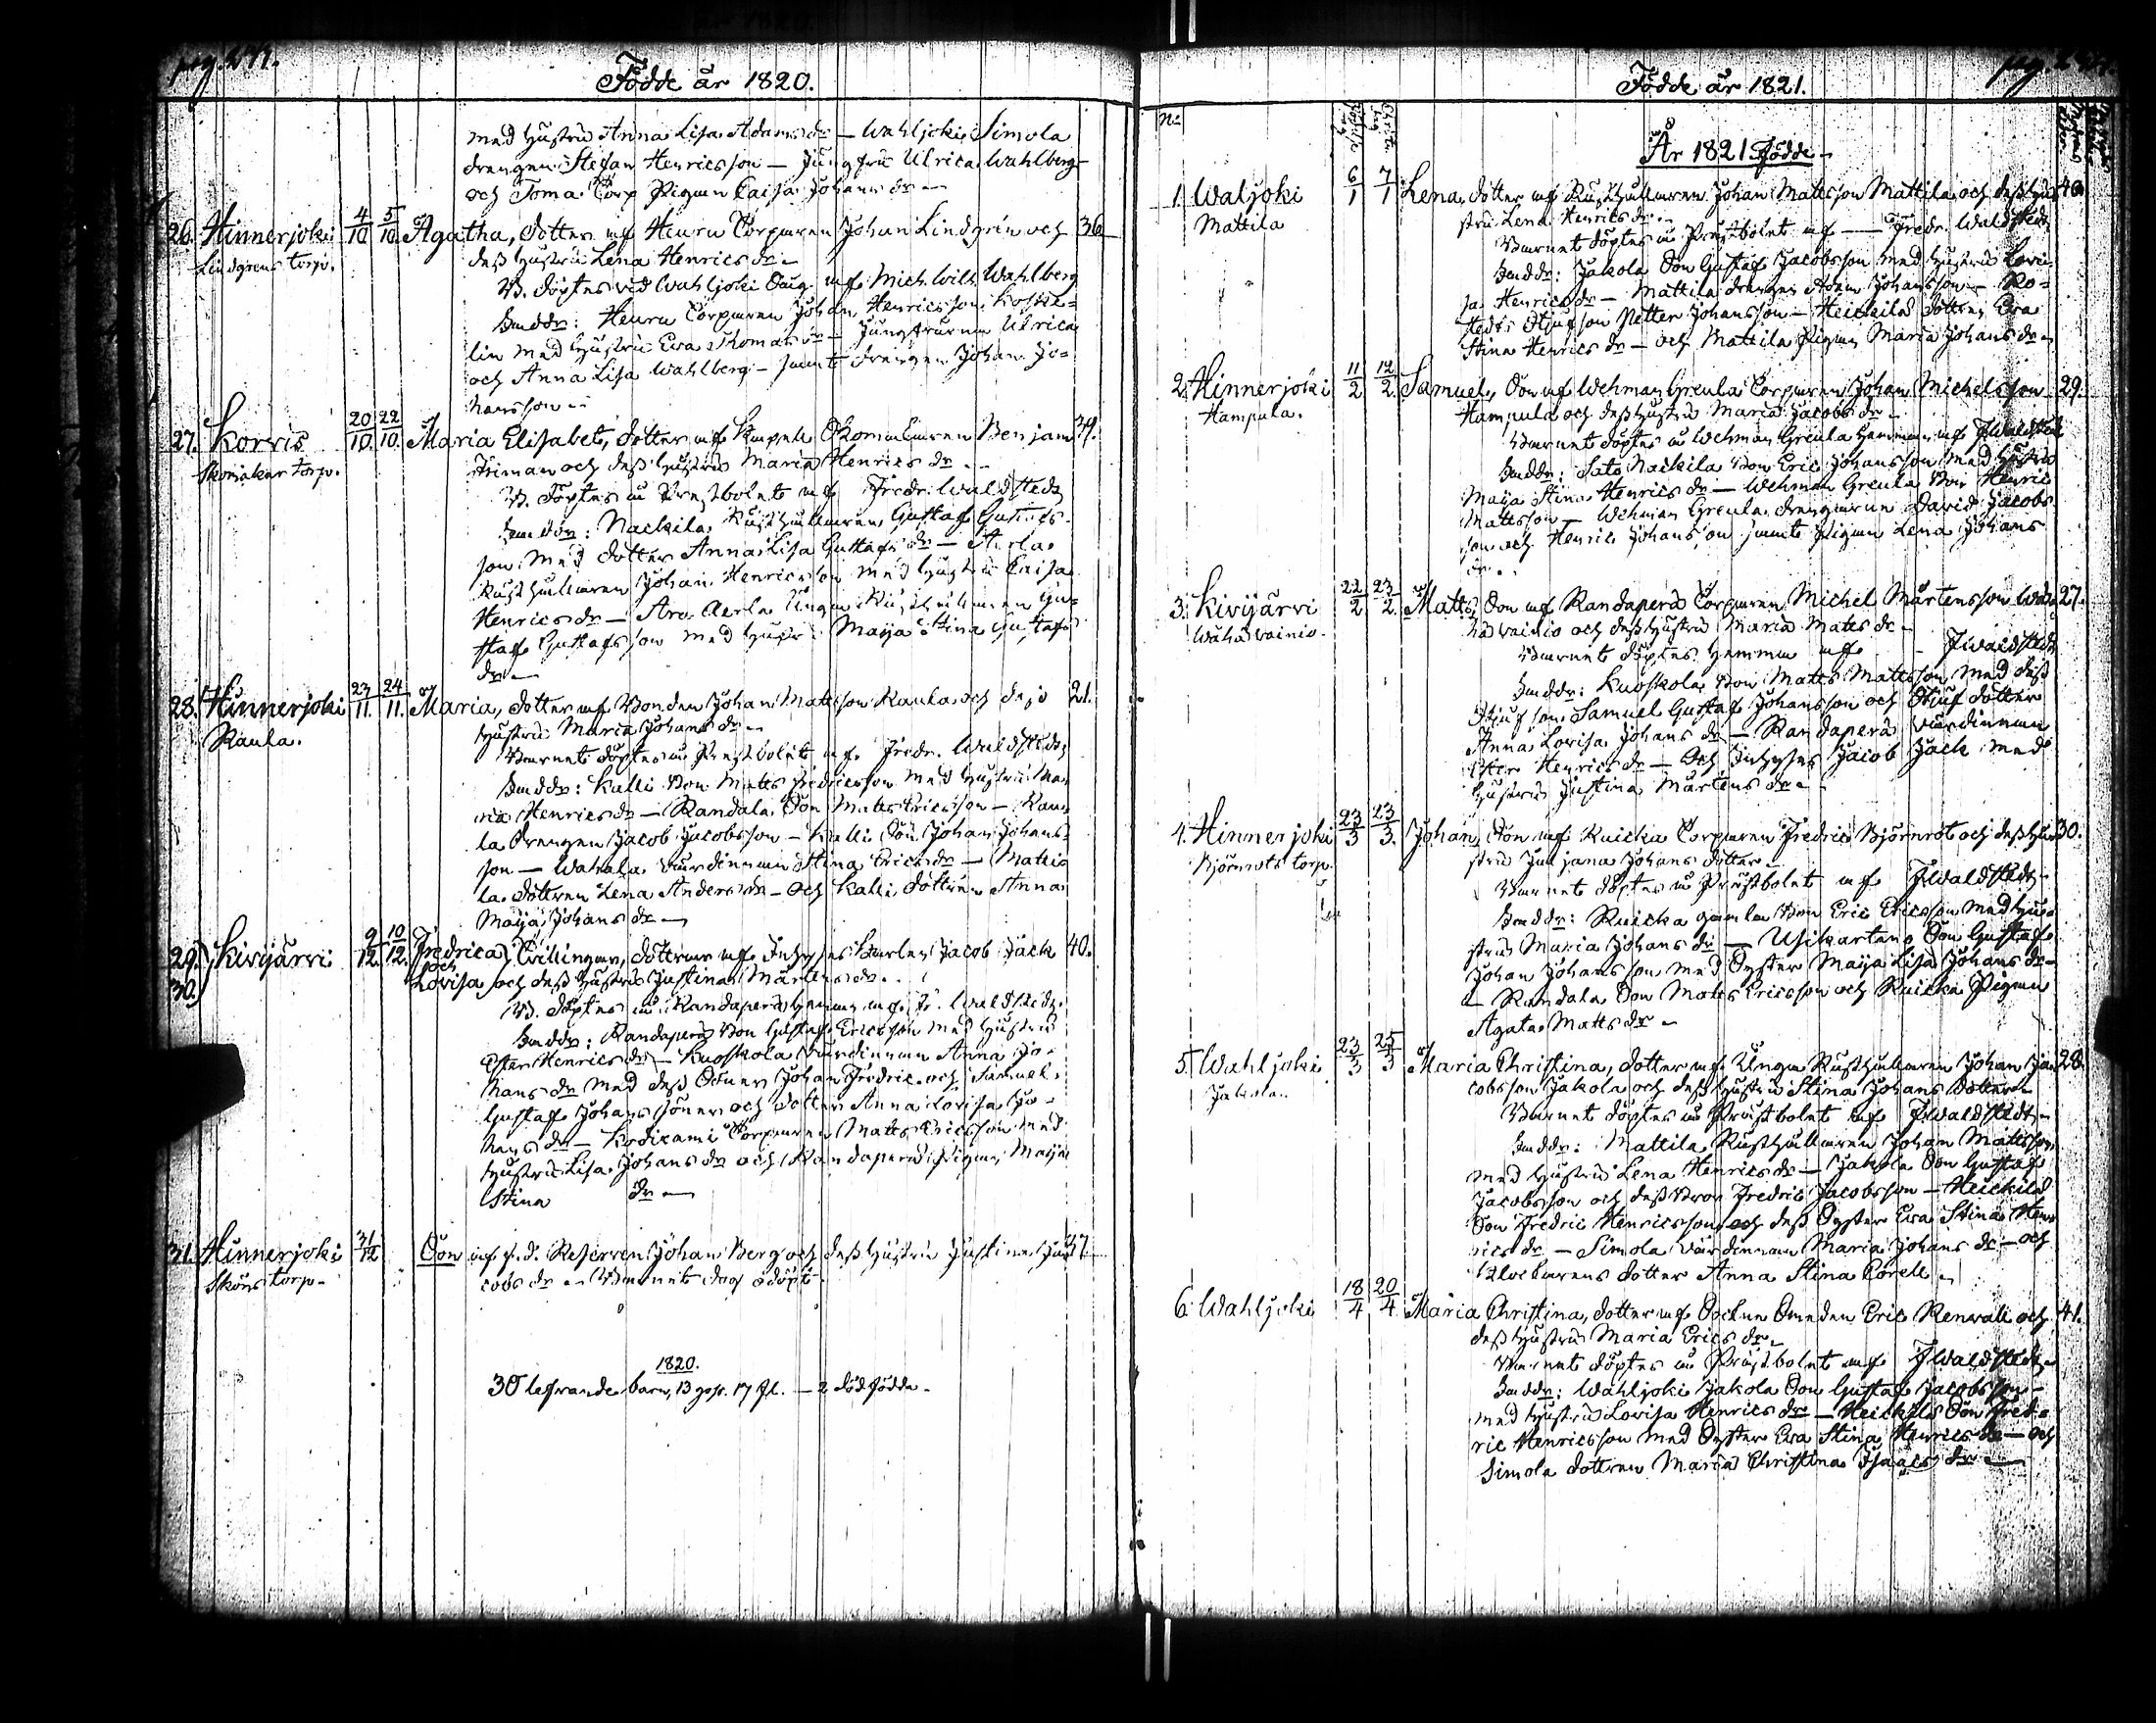 Födde år 1820.
med hustru Anna Lisa Adams dr — Wahljoki Simola
drengen Stefan Henricsson — Jungfru Ulrica Wahlberg
och Toma Torp Pigan Caisa Johans dr —
26. Hinnerjoki 4/10 5/10 Agatha, dotter af Heuru Torparen Johan Lindgrén och 36
Lindgrens torp. dess hustru Lena Henrics dr —
B. döptes vid Wahljoki af Mich. Wilh. Wahlberg
Faddr: Heuru Torparen Johan Henricsson Koske-
lin med hustru Eva Thomas dr — Jungfrurna Ulrica
och Anna Lisa Wahlberg — samt drengen Johan Jo-
hansson —
27. Korvis 20/10 22/10 Maria Elisabet, dotter af Skomakaren Benjam
Skomakar torp. och dess hustru Maria Henrics dr —
B. döptes i Prestbolet af Fredr. Waldstedt
Faddr: Nackila Rusthållaren Gustaf Gustafs-
son med dotter Anna Lisa Gustafs dr —
Rusthållaren Johan Henricsson med hustru Caisa
Henrics dr — Aro Unga Rusthållaren Gu-
staf Gustafsson med hustru Maija Stina Gustafs
dr —
28. Hinnerjoki 23/11 24/11 Maria, dotter af Bonden Johan Mattsson Raula och dess 21.
Raula. hustru Maria Johans dr —
Barnet döptes i Prestbolet af Fredr. Waldstedt
Faddr: Kalli Bon Matts Fredricsson med hustru Ma-
ria Henrics dr — Randala Son Matts Ericsson — Rau-
la drengen Jacob Jacobsson — Kalli Son Johan Johans-
son — värdinnan Stina Erics dr — Matti-
la dottren Lena Anders dr — och Kalli dottren Anna
Maija Johans dr —
29. 30. Kivijärvi 9/12 10/12 Fredrica och Lovisa Tvillingar, döttrar af Inhyses Karlen Jacob Jack 40.
och dess hustru Justina Mårtens dr.
B. döptes i Randaperä hemman af F. Waldstedt.
Faddr: Randaperä Bon Gustaf Ericsson med hustru
Ester Henrics dr — Kuoskola värdinnan Anna Jo-
hans dr med dess Söner Johan Fredric och Samuel
Gustaf Johans söner och dotter Anna Lovisa Jo-
hans dr — Torparen Matts Ericsson med
hustru Lisa Johans dr och Randaperä Pigan Maija
Stina dr —
31. Hinnerjoki 31/12 Son af f.d. Reserven Johan Berg och dess hustru Justina Ja- 37
torp — cobs dr — Barnet dog odöpt
1820.
30 lefvande barn, 13 goss. 17 fl. — 2 dödfödda —
Födde år 1821.
No
År 1821 Födde —
1. Waljoki 6/1 7/1 Lena, dotter af Rusthållaren Johan Mattsson Mattila och dess hu-
Mattila stru Lena Henrics dr —
Barnet döptes i Prestbolet af — Fredr. Waldstedt
Faddr: Jakola Son Gustaf Jacobsson med hustru Lovi-
sa Henrics dr — Mattila drengen Johansson —
Stjufson Petter Johansson — Heickilä dottren Eva
Stina Henrics dr — och Mattila Pigan Maria Johans dr —
2. Hinnerjoki 11/2 12/2 Samuel, Son af Wehman Greula Torparen Johan Michelsson 29.
Hampula. Hampula och dess hustru Maria Jacobs dr —
Barnet döptes i Wehman Greula hemman af F Waldstedt
Faddr: Sato Nackila Bon Eric Johansson med hustru
Maija Stina Henrics dr — Wehman Greula Bon Henric
Mattsson — Wehman Greula drengarna David Jacobs-
son och Henric Johansson samt Pigan Lena Johans
dr —
3. Kivijärvi 22/2 23/2 Matts, Son af Randaperä Torparen Michel Mårtensson Wä- 27.
Wähävainio — hävainio och dess hustru Maria Matts dr —
Barnet döptes hemma af — F Waldstedt
Faddr: Kuoskola Bon Matts Mattsson med dess
Stjufson Samuel Gustaf Johansson och Stjufdotter
Anna Lovisa Johans dr — Randaperä värdinnan
Ester Henrics dr — och Inhyses Jacob Jack med
hustru Justina Mårtens dr —
4. Hinnerjoki 23/3 23/3 Johan, Son af Ruicka Torparen Fredric Björnrot och dess hu- 30.
Björnrots torp. stru Juljana Johans dotter —
Barnet döptes i Prästbolet af F Waldstedt —
Faddr: Ruicka gamla Bon Eric Ericsson med hu-
stru Maria Johans dr — Uhikartano Son Gustaf
Johan Johansson med Syster Maija Lisa Johans dr —
— Randala Son Matts Ericsson och Ruicka Pigan
Agata Matts dr —
5. Wahljoki 23/3 25/3 Maria Christina, dotter af Unga Rusthållaren Johan Ja- 28.
Jakola. cobsson Jakola och dess hustru Stina Johans dotter —
Barnet döptes i Prästbolet af F Waldstedt —
Faddr: Mattila Rusthållaren Johan Mattsson
med hustru Lena Henrics dr — Jakola Son Gustaf
Jacobsson och dess Bror Fredric Jacobsson — Heickilä
Son Fredric Henricsson och dess Syster Eva Stina Hen-
rics dr — Simola värdinnan Maria Johans dr — och
Klockarens dotter Anna Stina Corell —
6. Wahljoki 18/4 20/4 Maria Christina, dotter af Sockne Smeden Eric Renvall och 41.
dess hustru Maria Erics dr —
Barnet döptes i Prästbolet af F Waldstedt —
Faddr: Wahljoki Jakola Son Gustaf Jacobsson —
med hustru Lovisa Henrics dr — Heickilä Son Fred-
ric Henricsson med Syster Eva Stina Henrics dr — och
Simola dottren Maria Christina Isaacs dr —